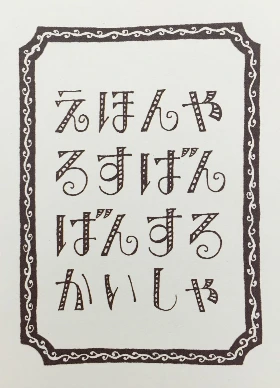 えほんや
るすばん
ばんする
かいしゃ